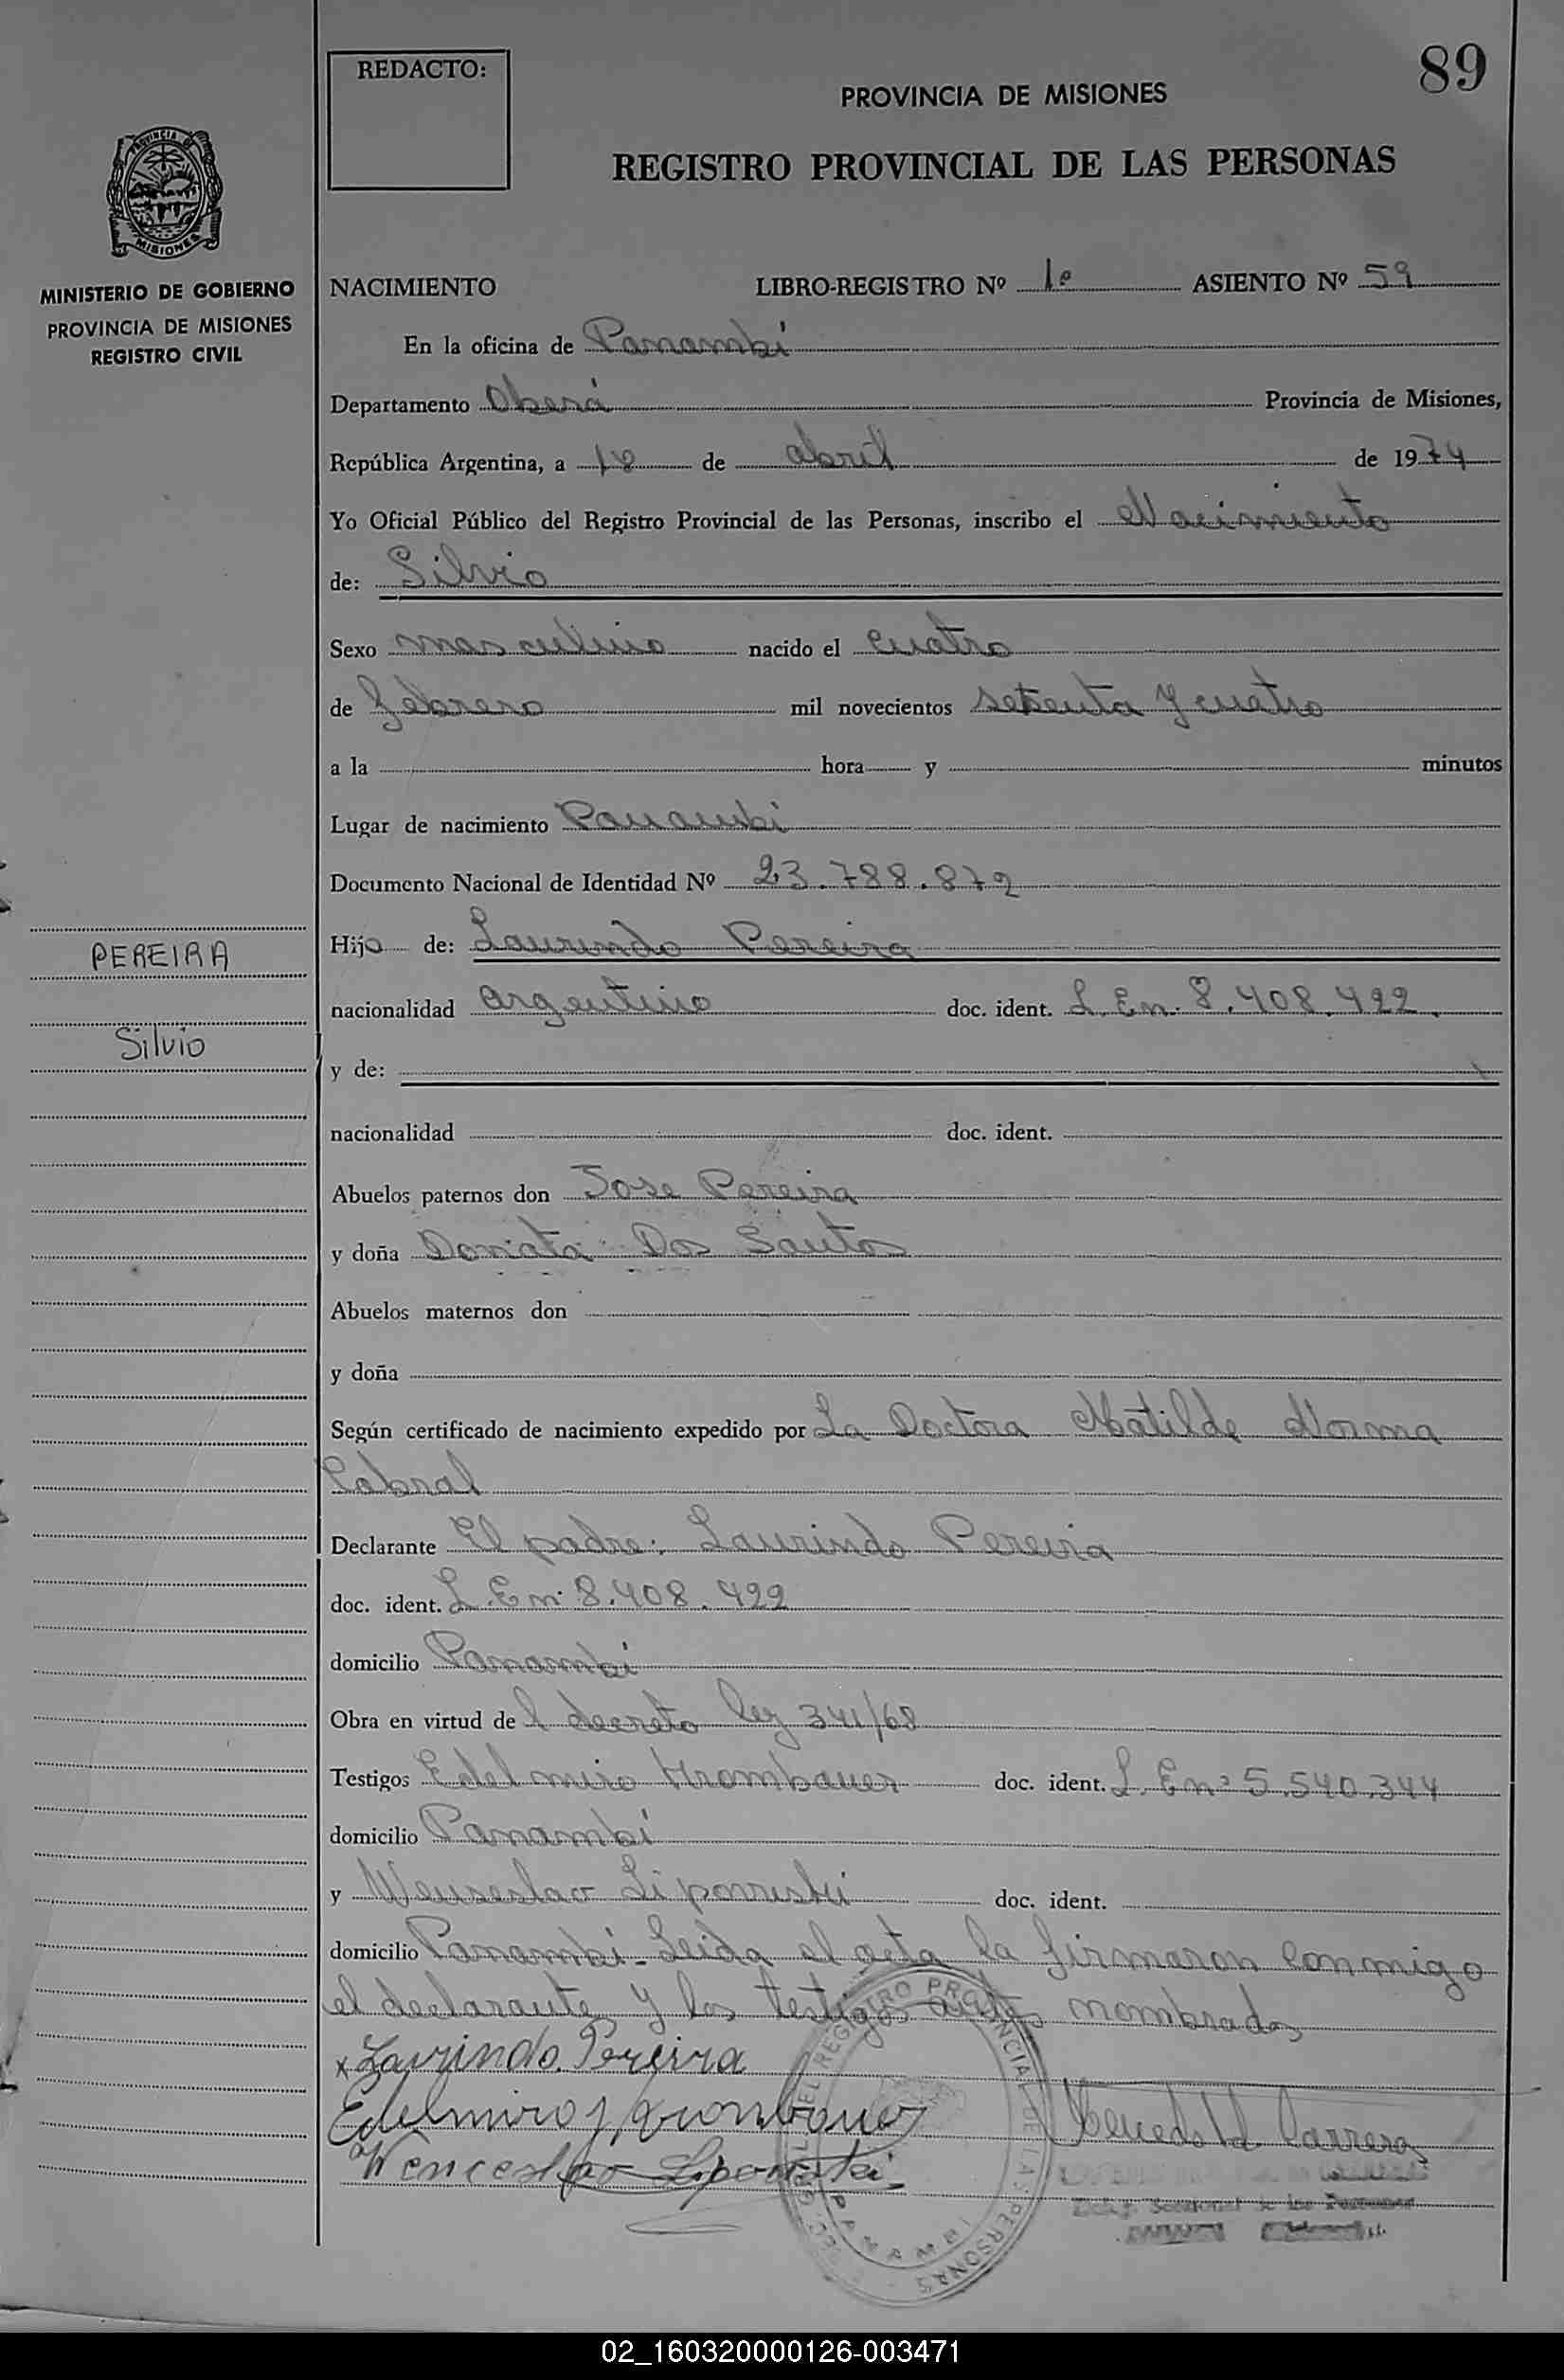 89
REDACTO:
PROVINCIA DE MISIONES
REGISTRO PROVINCIAL DE LAS PERSONAS
PROVINCIA DE
MISIONES
MINISTERIO DE GOBIERNO
PROVINCIA DE MISIONES
REGISTRO CIVIL
NACIMIENTO LIBRO-REGISTRO Nº 1º ASIENTO Nº 59
En la oficina de Panambí
Departamento Oberá Provincia de Misiones,
República Argentina, a 18 de abril de 1974
Yo Oficial Público del Registro Provincial de las Personas, inscribo el Nacimiento
de: Silvio
Sexo masculino nacido el cuatro
de febrero mil novecientos setenta y cuatro
a la hora y minutos
Lugar de nacimiento Panambi
Documento Nacional de Identidad Nº 23.788.872
PEREIRA
Silvio
Hijo de: Laurindo Pereira
nacionalidad argentino doc. ident. L. En. 8.408.422.
y de:
nacionalidad doc. ident.
Abuelos paternos don Jose Pereira
y doña Doniata Dos Santos
Abuelos maternos don
y doña
Según certificado de nacimiento expedido por La Doctora Matilde Norma
Cabral
Declarante El padre: Laurindo Pereira
doc. ident. L. En. 8.408.422
domicilio Panambi
Obra en virtud de l decreto ley 341/68
Testigos Edelmiro Krombauer doc. ident. L. En: 5.540.344
domicilio Panambí
y Wenseslao doc. ident.
domicilio Panambi. Leida el acta la firmaron conmigo
el declarante y los testigos antes nombrados
x Laurindo Pereira
Edelmiro
Wenceslao
REGISTRO PROVINCIAL DE LAS PERSONAS
PANAMBI
02_160320000126-003471